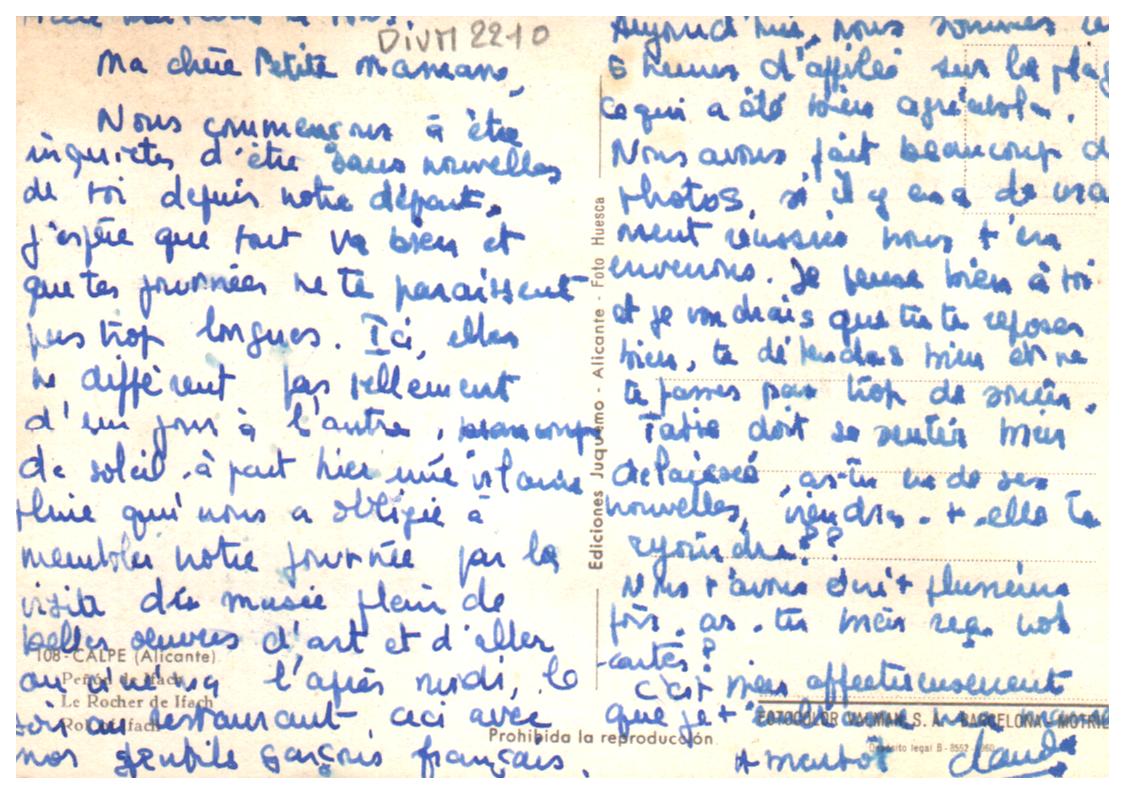 DIVM 2210
Ma chère Petite maman,
Nous commençons à être
inquiètes d'être sans nouvelles
de toi depuis notre départ,
j'espère que tout va bien et
que tes journées ne te paraissent
pas trop longues. Ici, elles
ne diffèrent pas tellement
d'un jour à l'autre, beaucoup
de soleil. à part hier une
pluie qui nous a obligié à
meubler notre journée par la
visite du musée plein de
belles oeuvres d'art et d'aller
au cinéma l'après midi, le
soir au restaurant ceci avec
nos gentils garçons français.
108 - CALPE (Alicante)
Peñón de Ifach
Le Rocher de Ifach
Ifach
Ediciones Juquemo - Alicante - Foto Huesca
Prohibida la reproducción
Aujourd'hui, nous sommes
5 heures d'affilée sur la plag
ce qui a été bien agréable.
Nous avons fait beaucoup d
photos, si il y en a de vrai
ment réussies nous t'en
enverrons. Je pense bien à toi
et je voudrais que tu te reposes
bien, te détendes bien et ne
te fasses pas trop de soucis.
Tatie doit se sentir bien
délaissée, as-tu eu de ses
nouvelles, viendra-t-elle te
rejoindre??
Nous t'avons écrit plusieurs
fois, as-tu bien reçu nos
cartes?
C'est bien affectueusement
que je t'
FOTOCOLOR VALMAN, S. A. - BARCELONA
Depósito legal B - 8552
A bientôt Claude